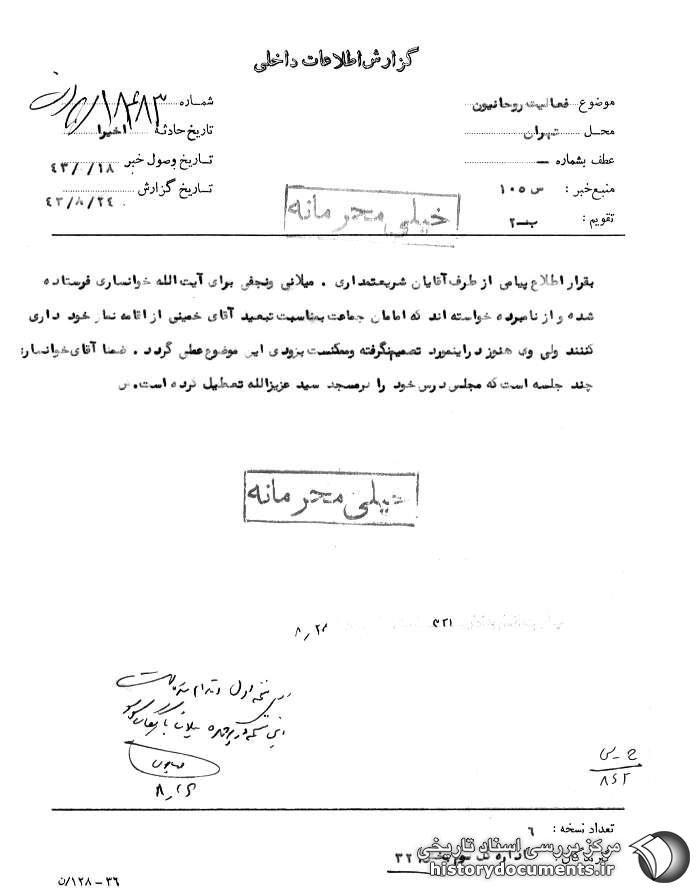 گزارش اطلاعات داخلی
موضوع فعالیت روحانیون
شماره ۱۸۴۸۳/
محل تهران
تاریخ حادثه اخیرا
عطف بشماره —
تاریخ وصول خبر ۴۳/۰/۱۸
منبع خبر : س ۱۰۵
تاریخ گزارش ۴۳/۸/۲۴
تقویم : ب-۲
خیلی محرمانه
بقرار اطلاع پیامی از طرف آقایان شریعتمداری . میلانی ونجفی برای آیت الله خوانساری فرستاده
شده و از نامبرده خواسته اند که امامان جماعت بمناسبت تبعید آقای خمینی از اقامه نماز خود داری
کنند ولی وی هنوز دراینمورد تصمیم نگرفته وممکنست بزودی این موضوع عملی گردد . ضمنا آقای خوانساری
چند جلسه است که مجلس درس خود را درمسجد سید عزیزالله تعطیل کرده است.
خیلی محرمانه
۳۲۱
۸/۲۴
نسخه اول
۸/۲۶
ح-س
۸۴۲
تعداد نسخه : ۶
۳۲
مرکز بررسی اسناد تاریخی
historydocuments.ir
۳۶-۱۲۸/ن